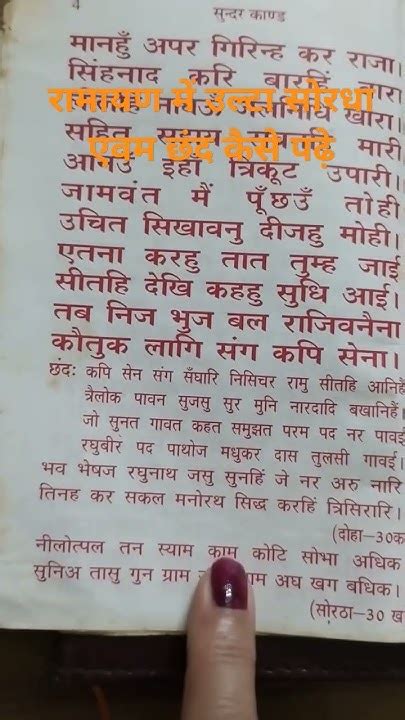 4
सुन्दर काण्ड
मानहुँ अपर गिरिन्ह कर राजा।
सिंहनाद करि बारहिं बारा
रामायण में उल्टा सोरठा
खारा।
एवम छंद कैसे पढ़े
सहित मारी
आनउँ इहाँ त्रिकूट उपारी।
जामवंत मैं पूँछउँ तोही
उचित सिखावनु दीजहु मोही।
एतना करहु तात तुम्ह जाई
सीतहि देखि कहहु सुधि आई।
तब निज भुज बल राजिवनैना
कौतुक लागि संग कपि सेना।
छंद: कपि सेन संग सँघारि निसिचर रामु सीतहि आनिहैं
त्रैलोक पावन सुजसु सुर मुनि नारदादि बखानिहैं।
जो सुनत गावत कहत समुझत परम पद नर पावई
रघुबीर पद पाथोज मधुकर दास तुलसी गावई।
भव भेषज रघुनाथ जसु सुनहिं जे नर अरु नारि
तिनह कर सकल मनोरथ सिद्ध करहिं त्रिसिरारि।
(दोहा–30क
नीलोत्पल तन स्याम काम कोटि सोभा अधिक
सुनिअ तासु गुन ग्राम अघ खग बधिक।
(सोरठा–30 ख